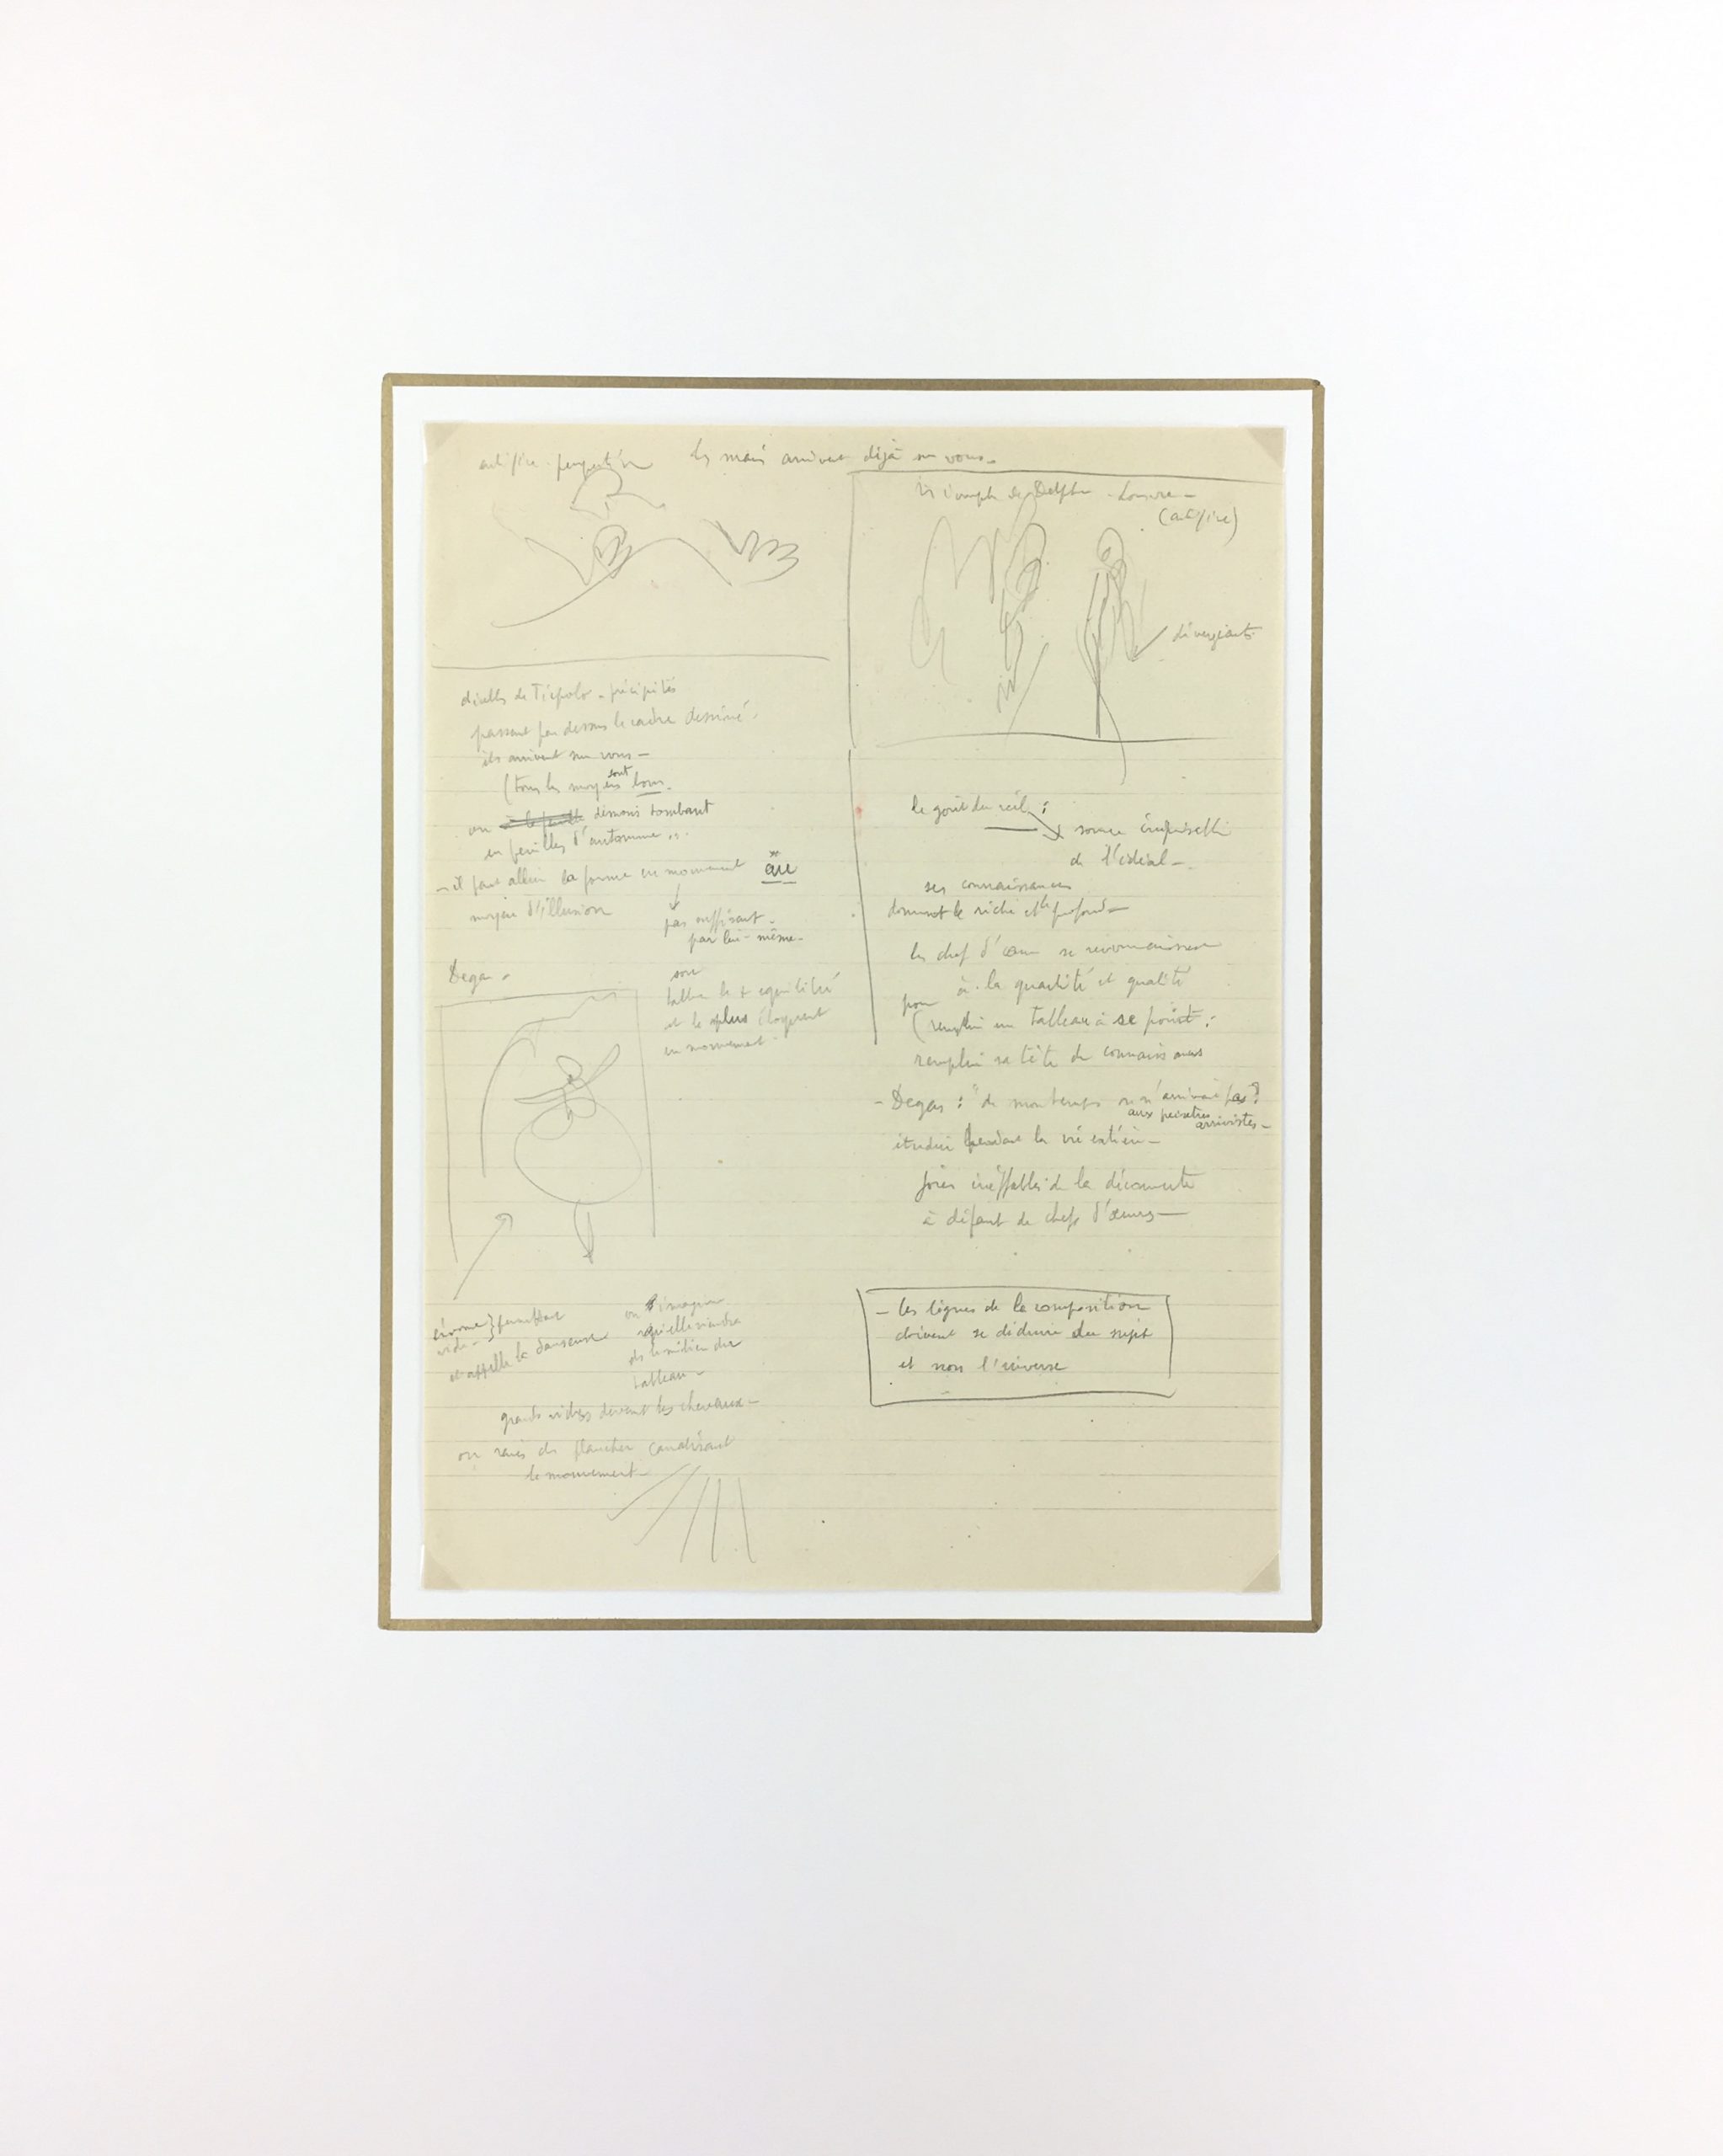 les mains arrivent déjà sur vous -
Louvre -
divergeants
diables de Tiépolo - précipités
passant par dessus le cadre dessiné -
ils arrivent sur vous -
(tous les moyens sont bons -
ou démons tombant
en feuilles d'automne ...
- il faut allier la forme en mouvement au
moyen d'illusion
pas suffisant -
par lui-même -
Degas -
son
tableau le + equilibré
et le plus éloquent
en mouvement -
énorme } permettant
vide -
et appelle la danseuse
on s'imagine
qu'elle viendra
au milieu du
tableau -
grands vides devant les chevaux -
ou raies du plancher canalisant
le mouvement -
le goût du réel :
source inépuisable
de l'idéal -
ses connaissances
donnent le riche et le profond -
les chef d'œuvre se reconnaissent
à la quantité et qualité
pour
(remplir un tableau à se point :
remplir sa tête de connaissances
- Degas : "de mon temps on n'arrivait pas"
aux peintres
arrivistes -
étudier pendant la vie entière -
joies ineffables de la découverte
à défaut de chefs d'œuvres -
- les lignes de la composition
doivent se déduire du sujet
et non l'inverse